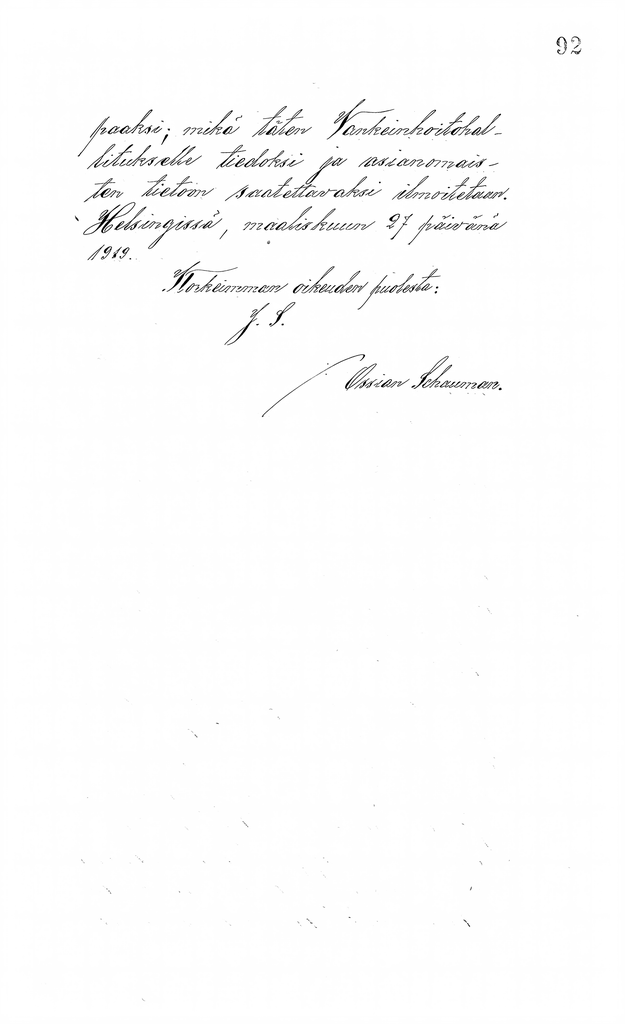 92
paaksi; mikä täten Vankeinhoitohal-
litukselle tiedoksi ja asianomais-
ten tietoon saatettavaksi ilmoitetaan.
Helsingissä, maaliskuun 27 päivänä
1919.
Korkeimman oikeuden puolesta:
Y. S.
Ossian Schauman.